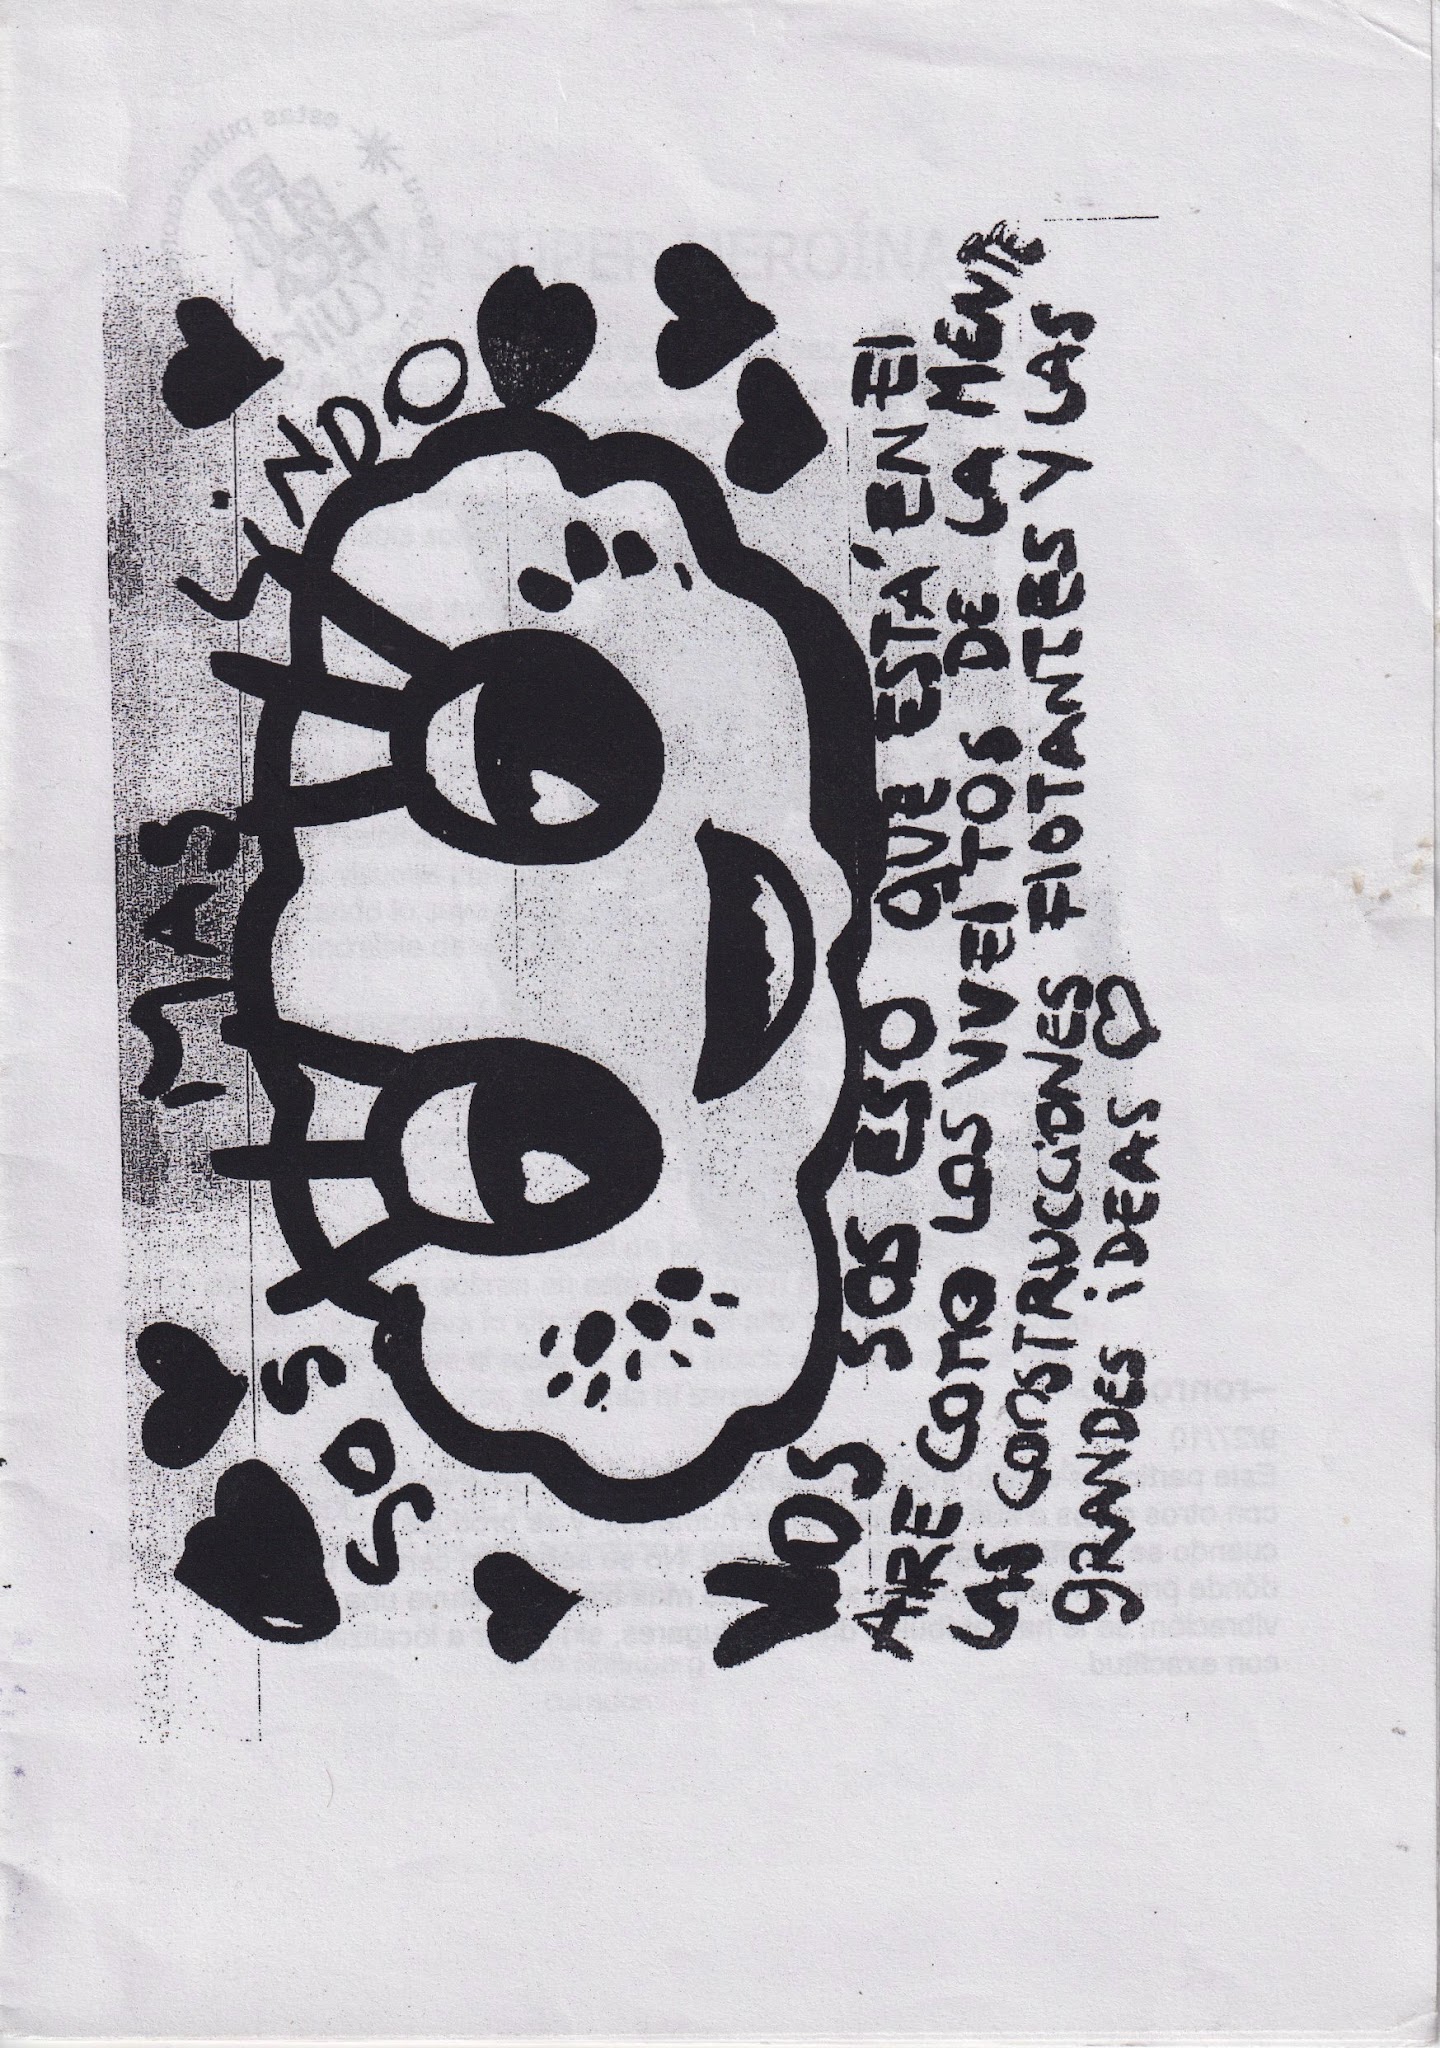 SOS MAS LiNDO
VOS SOS ESO QUE ESTÁ EN El
AIRE COMO LOS VUElTOS DE LA MENTE
LAS CONSTRUCCiONES FlOTANTES Y LAS
GRANDES iDEAS ♡